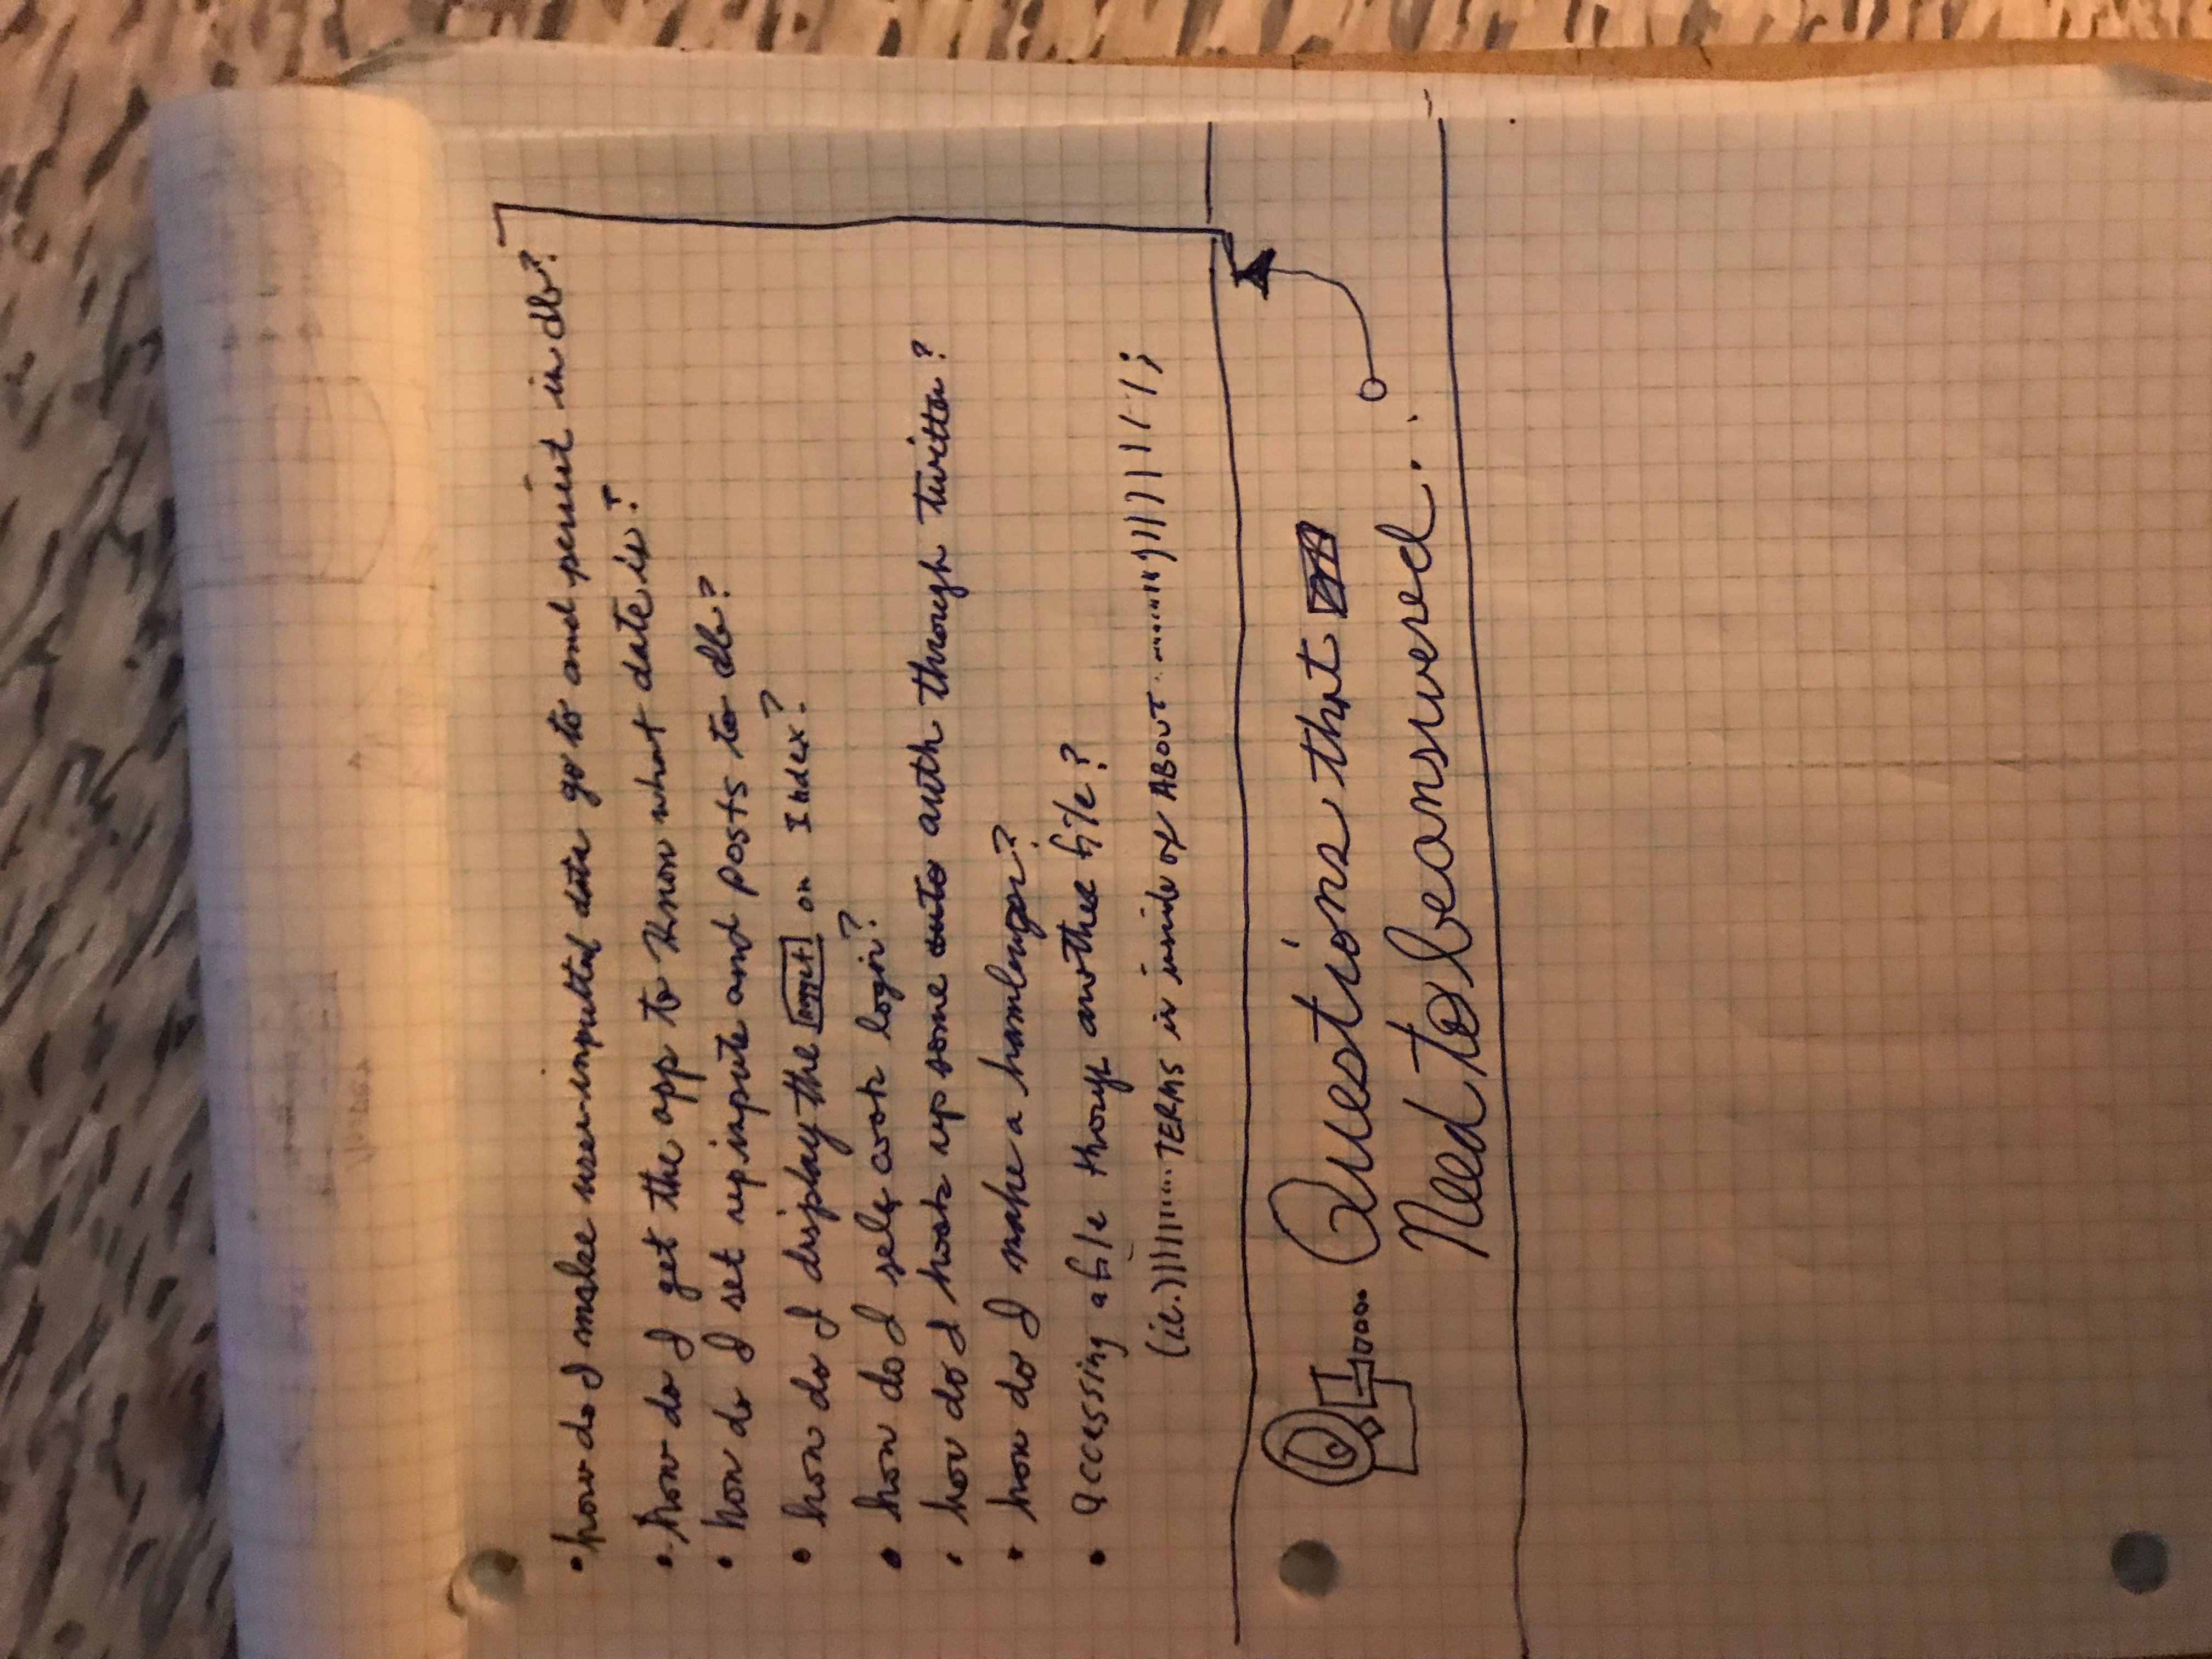 • how do I make user-inputted data go to and persist in db?
• how do I get the app to know what date is?
• how do I set up inputs and posts to db?
• how do I display the nugget on Index?
• how do I self cook login?
• how do I hook up some auto auth through twitter?
• how do I make a hamburger?
• accessing a file though another file?
(ie.) TERMS is inside of ABOUT ;
Questions that
Need to be answered...